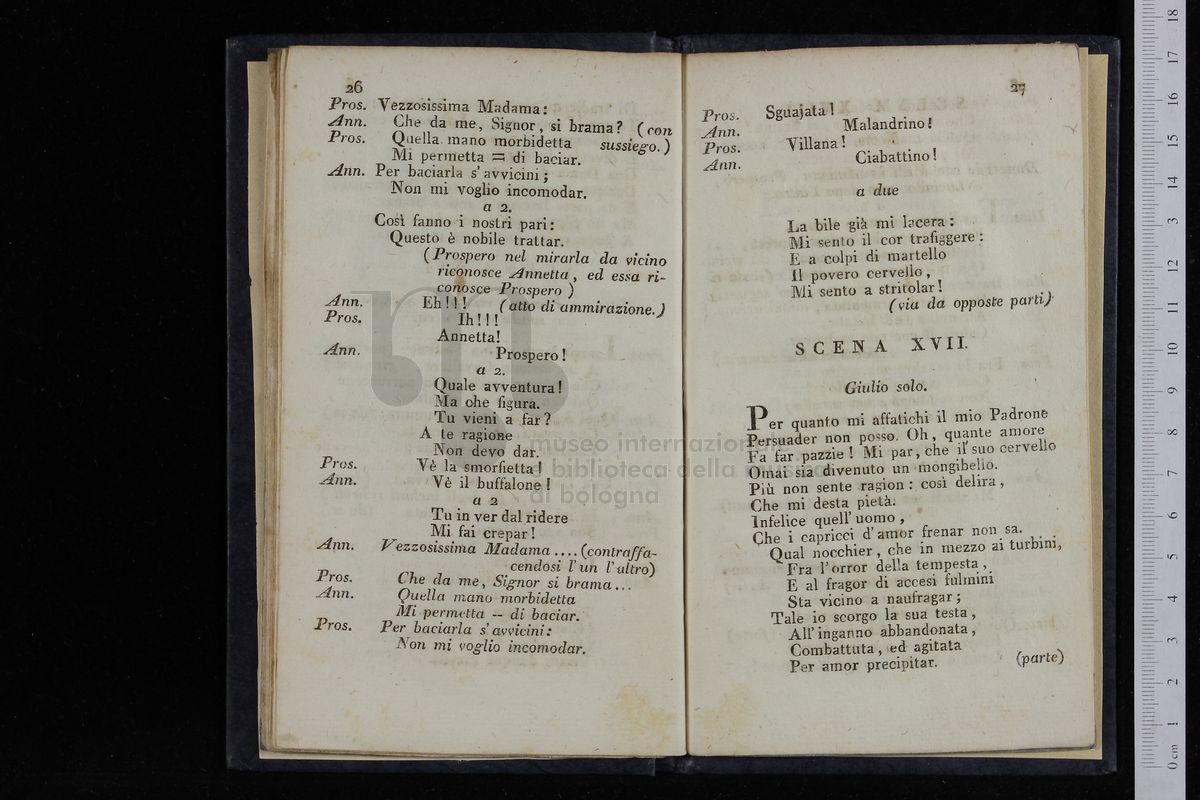 26
Pros. Vezzosissima Madama:
Ann. Che da me, Signor, si brama? (con
Pros. Quella mano morbidetta sussiego.)
Mi permetta = di baciar.
Ann. Per baciarla s'avvicini;
Non mi voglio incomodar.
a 2.
Così fanno i nostri pari:
Questo è nobile trattar.
(Prospero nel mirarla da vicino
riconosce Annetta, ed essa ri-
conosce Prospero)
Ann. Eh!!! (atto di ammirazione.)
Pros. Ih!!!
Annetta!
Ann. Prospero!
a 2.
Quale avventura!
Ma che figura.
Tu vieni a far?
A te ragione
Non devo dar.
Pros. Vè la smorfietta!
Ann. Vè il buffalone!
a 2
Tu in ver dal ridere
Mi fai crepar!
Ann. Vezzosissima Madama .... (contraffa-
cendosi l'un l'altro)
Pros. Che da me, Signor si brama...
Ann. Quella mano morbidetta
Mi permetta -- di baciar.
Pros. Per baciarla s'avvicini:
Non mi voglio incomodar.
27
Pros. Sguajata!
Ann. Malandrino!
Pros. Villana!
Ann. Ciabattino!
a due
La bile già mi lacera:
Mi sento il cor trafiggere:
E a colpi di martello
Il povero cervello,
Mi sento a stritolar!
(via da opposte parti)
SCENA XVII.
Giulio solo.
Per quanto mi affatichi il mio Padrone
Persuader non posso. Oh, quante amore
Fa far pazzie! Mi par, che il suo cervello
Omai sia divenuto un mongibello.
Più non sente ragion: così delira,
Che mi desta pietà.
Infelice quell'uomo,
Che i capricci d'amor frenar non sa.
Qual nocchier, che in mezzo ai turbini,
Fra l'orror della tempesta,
E al fragor di accesi fulmini
Sta vicino a naufragar;
Tale io scorgo la sua testa,
All'inganno abbandonata,
Combattuta, ed agitata
Per amor precipitar. (parte)
museo internazionale
e biblioteca della musica
di bologna
0 cm 1 2 3 4 5 6 7 8 9 10 11 12 13 14 15 16 17 18